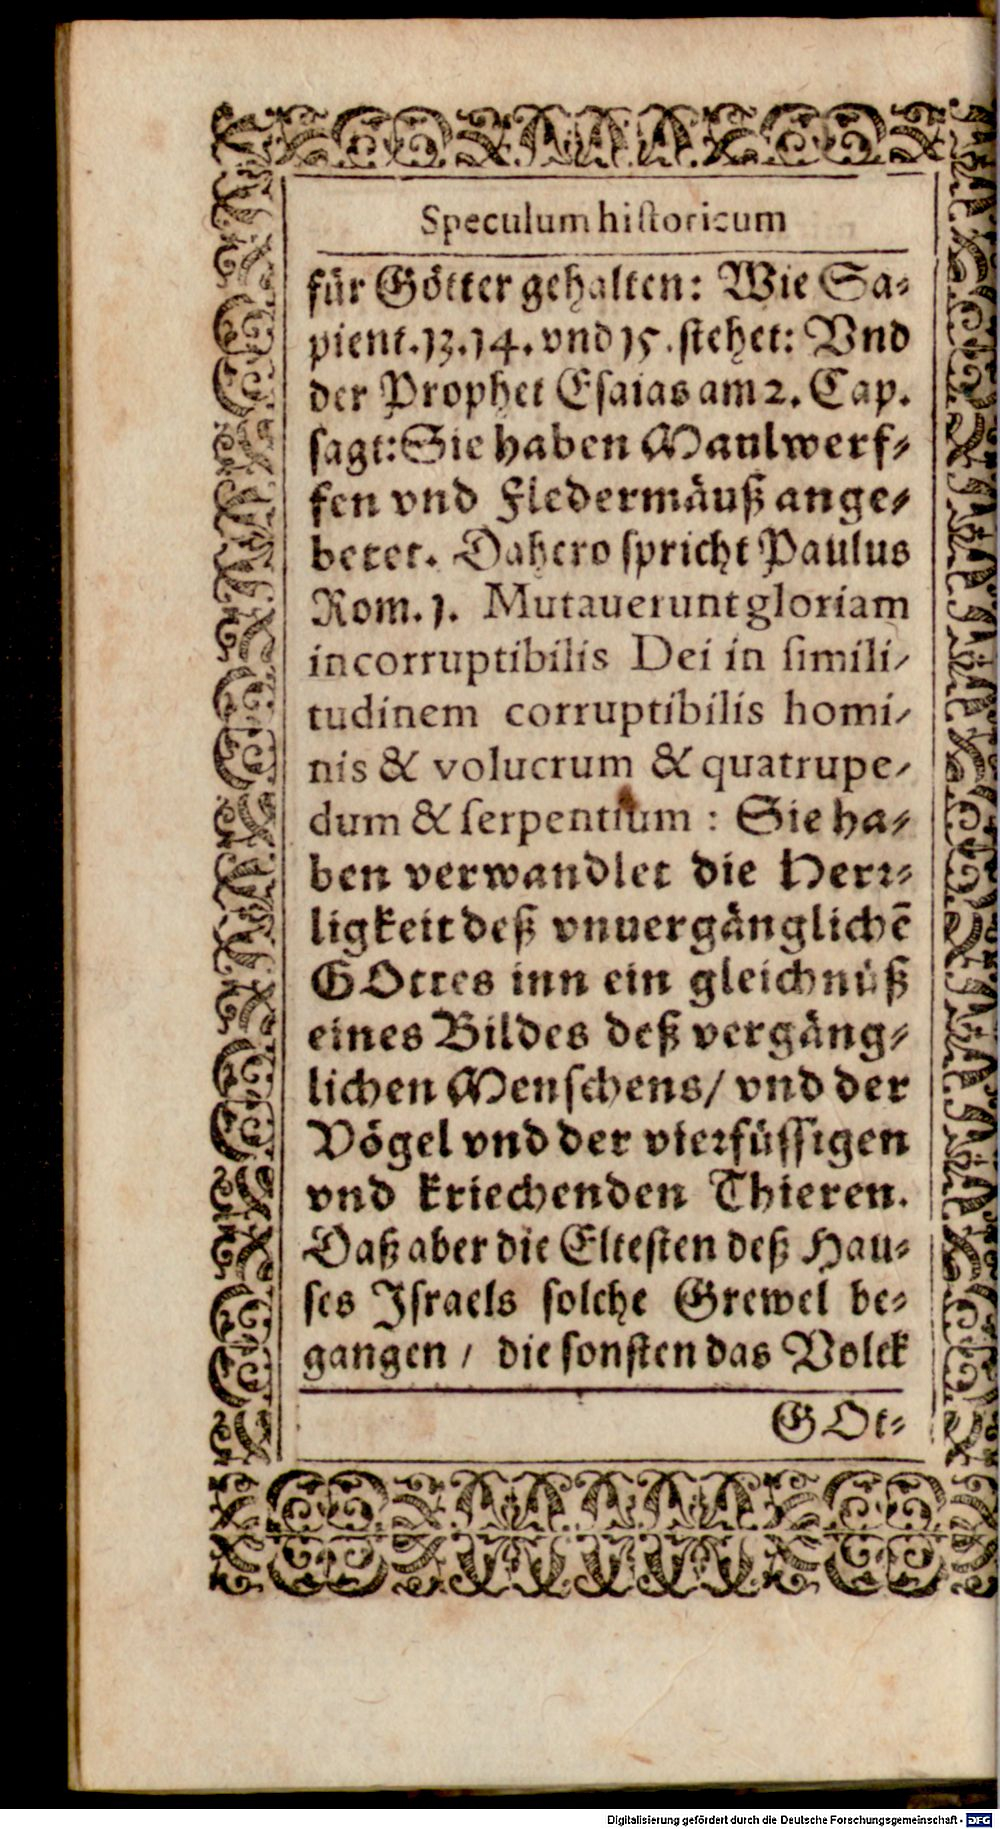 Speculum historicum
für Götter gehalten: Wie Sa-
pient. 13. 14. vnd 15. stehet: Vnd
der Prophet Esaias am 2. Cap.
sagt: Sie haben Maulwerf-
fen vnd Fledermäuß ange-
betet. Dahero spricht Paulus
Rom. 1. Mutauerunt gloriam
incorruptibilis Dei in simili-
tudinem corruptibilis homi-
nis & volucrum & quatrupe-
dum & serpentium : Sie ha-
ben verwandlet die Herr-
ligkeit deß vnuergänglichē
GOttes inn ein gleichnüß
eines Bildes deß vergäng-
lichen Menschens/ vnd der
Vögel vnd der vierfüssigen
vnd kriechenden Thieren.
Daß aber die Eltesten deß Hau-
ses Israels solche Grewel be-
gangen / die sonsten das Volck
GOt-
Digitalisierung gefördert durch die Deutsche Forschungsgemeinschaft - DFG